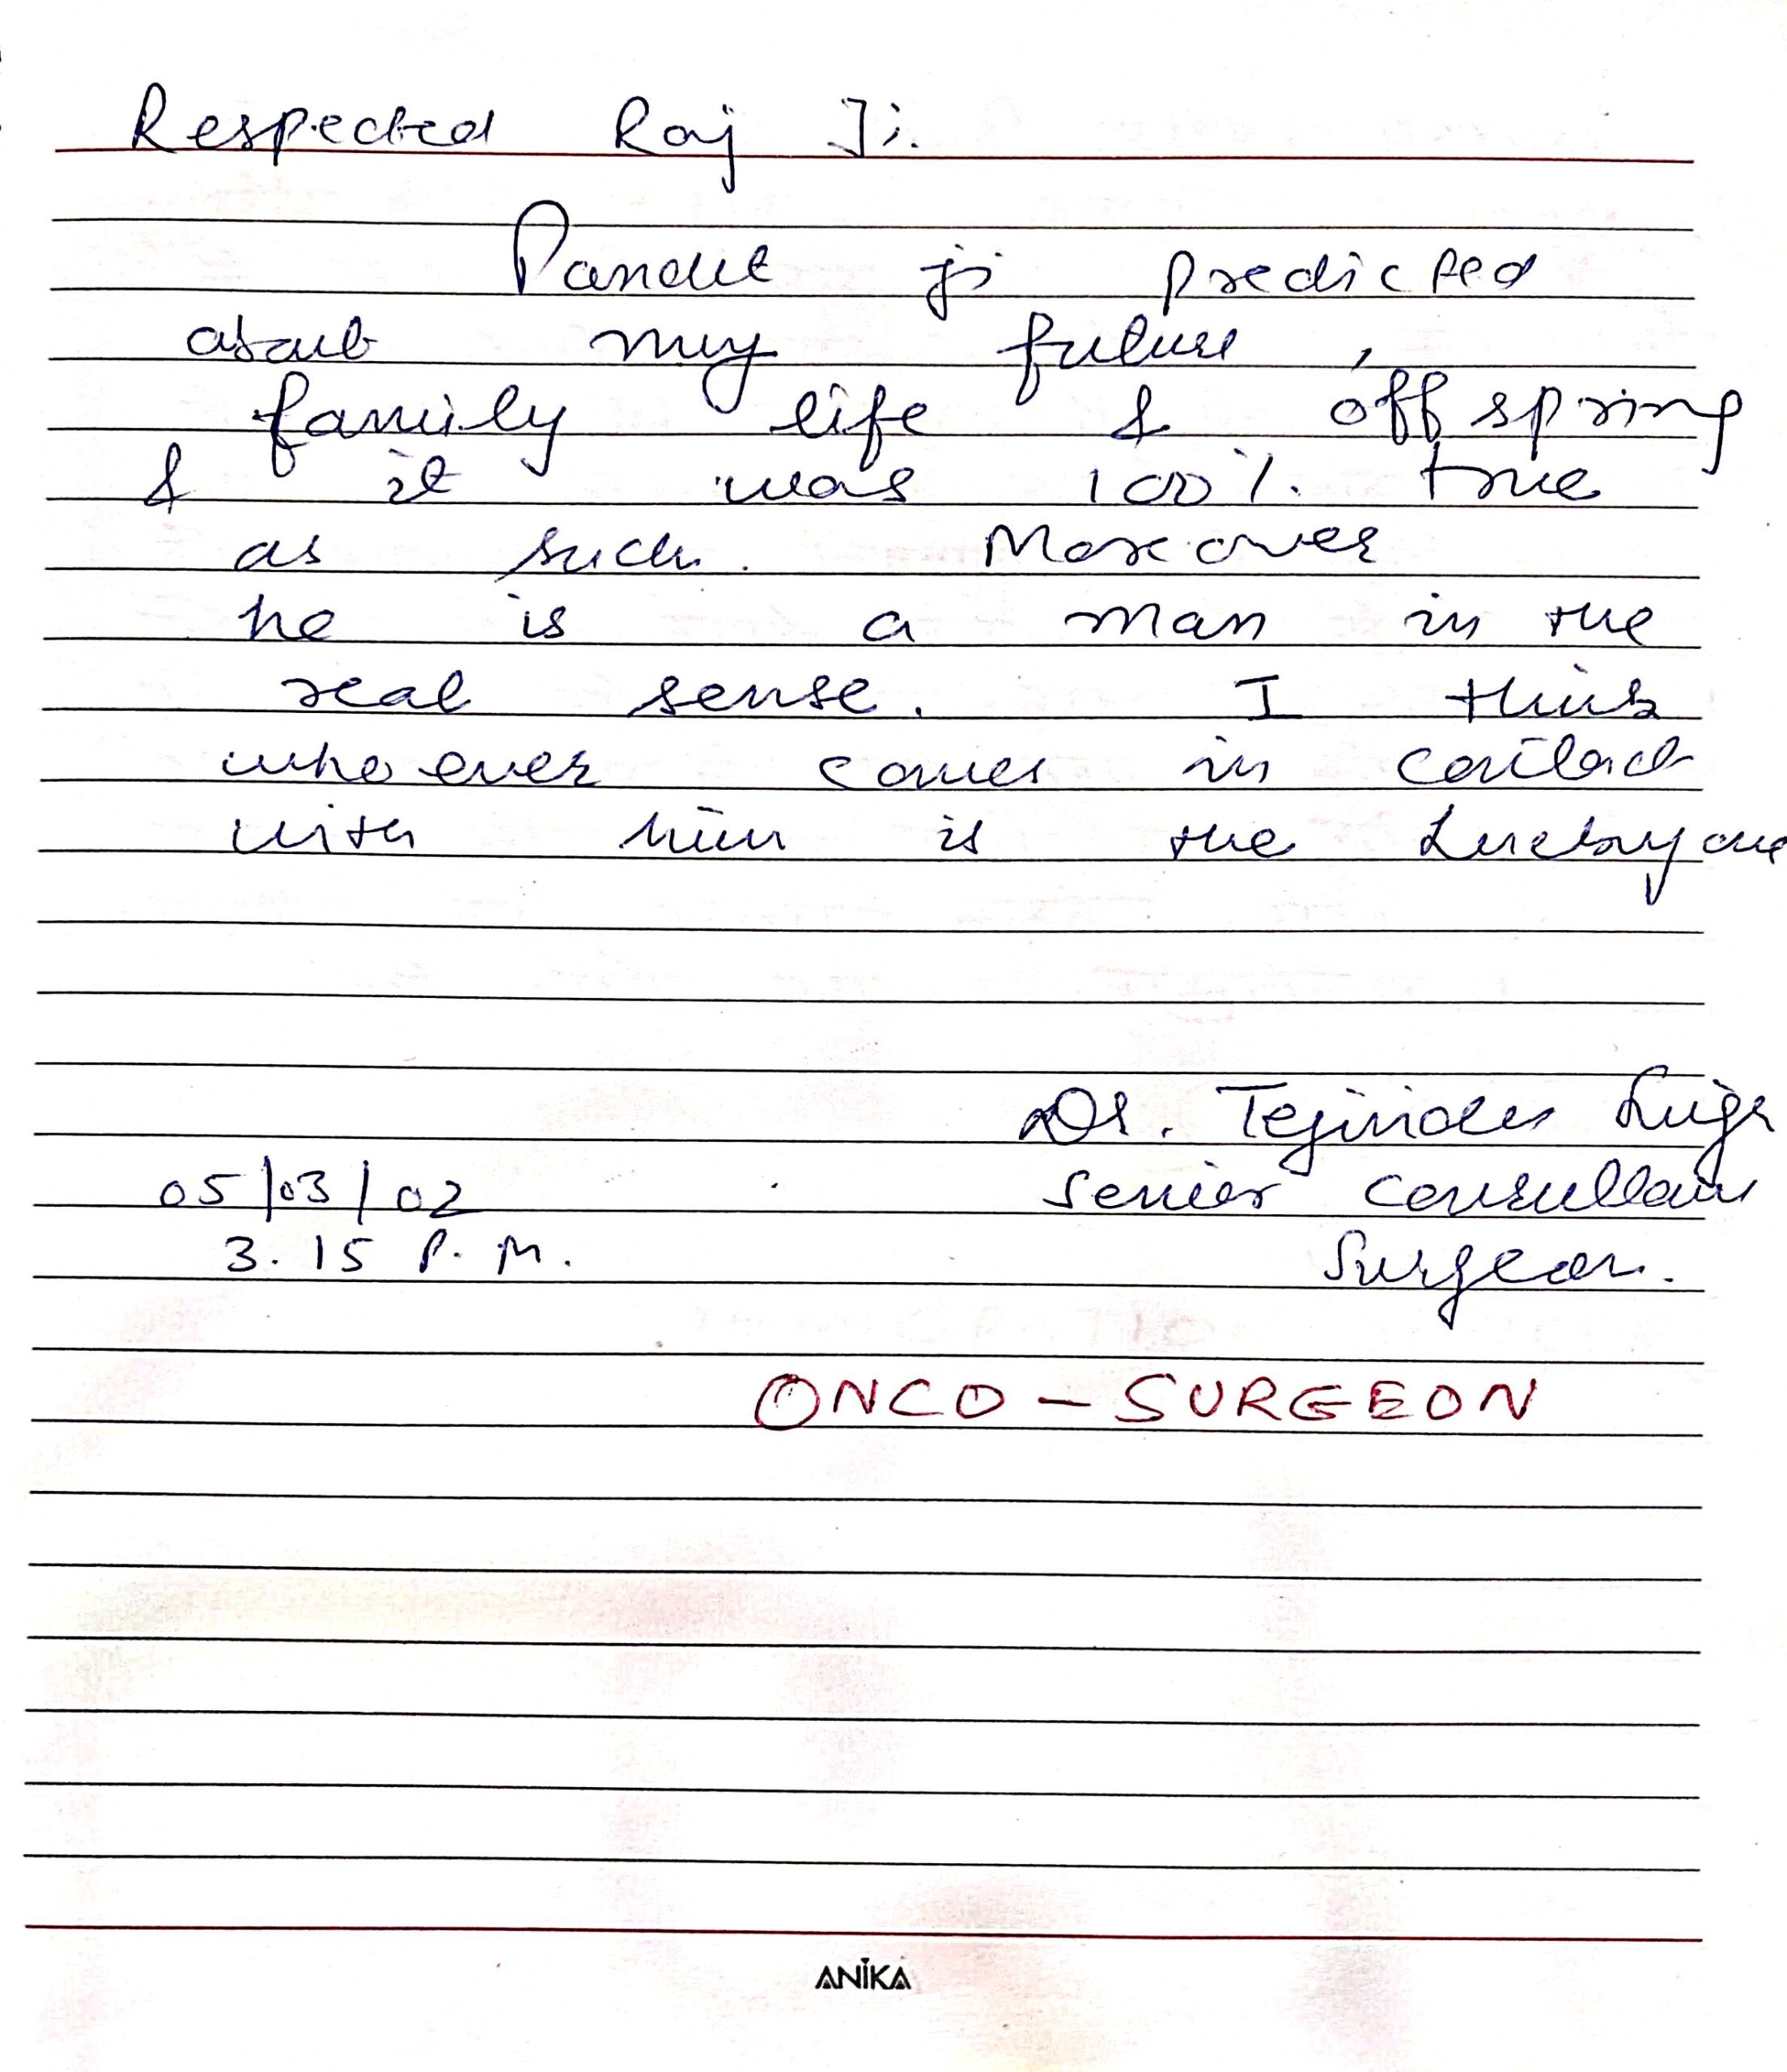 Respected Raj Ji.
Pandit ji predicted
about my future,
family life & offspring
& it was 100%. true
as such. Moreover
he is a man in the
real sense. I think
whoever comes in contact
with him is the Lucky one
Dr. Tejinder
05/03/02 Senior Consultant
3.15 P.M. Surgeon.
ONCO - SURGEON
ANIKA